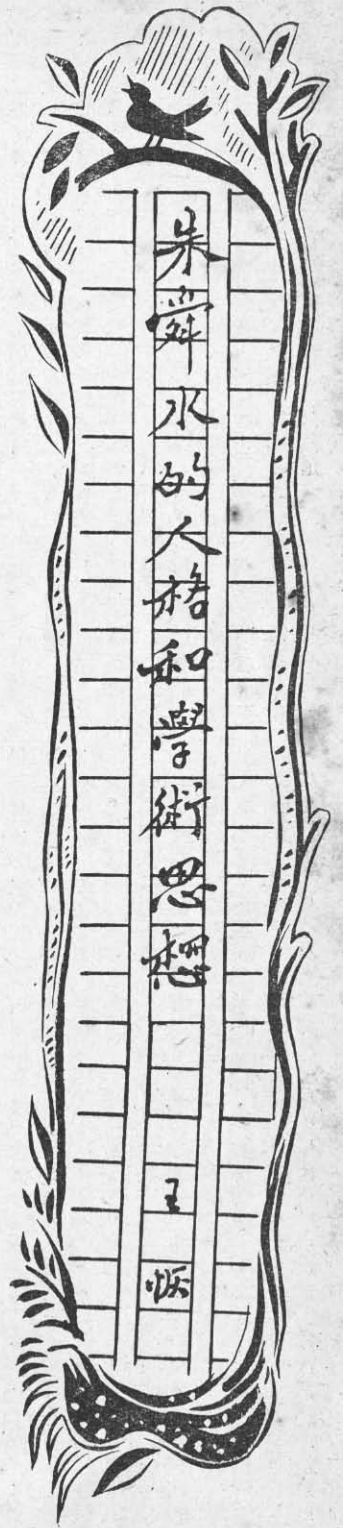 朱舜水的人格和學術思想
王恢